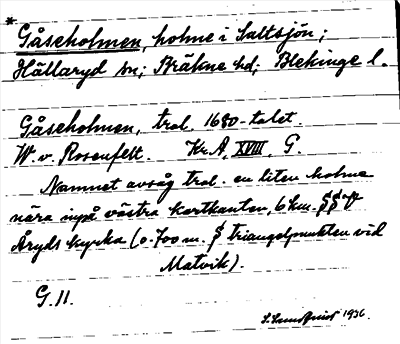 * Gåseholmen, holme i Saltsjön;
Hällaryd sn; Bräkne hd; Blekinge l.
Gåseholmen, trol. 1680-talet.
W. v. Rosenfelt. Kr. A. XVIII, G.
Namnet avsåg trol. en liten holme
nära inpå västra kartkanten, 6 km. S
Åryds kyrka (o. 700 m. S triangelpunkten vid
Matvik).
G. 11.
S. Lundqvist 1936.